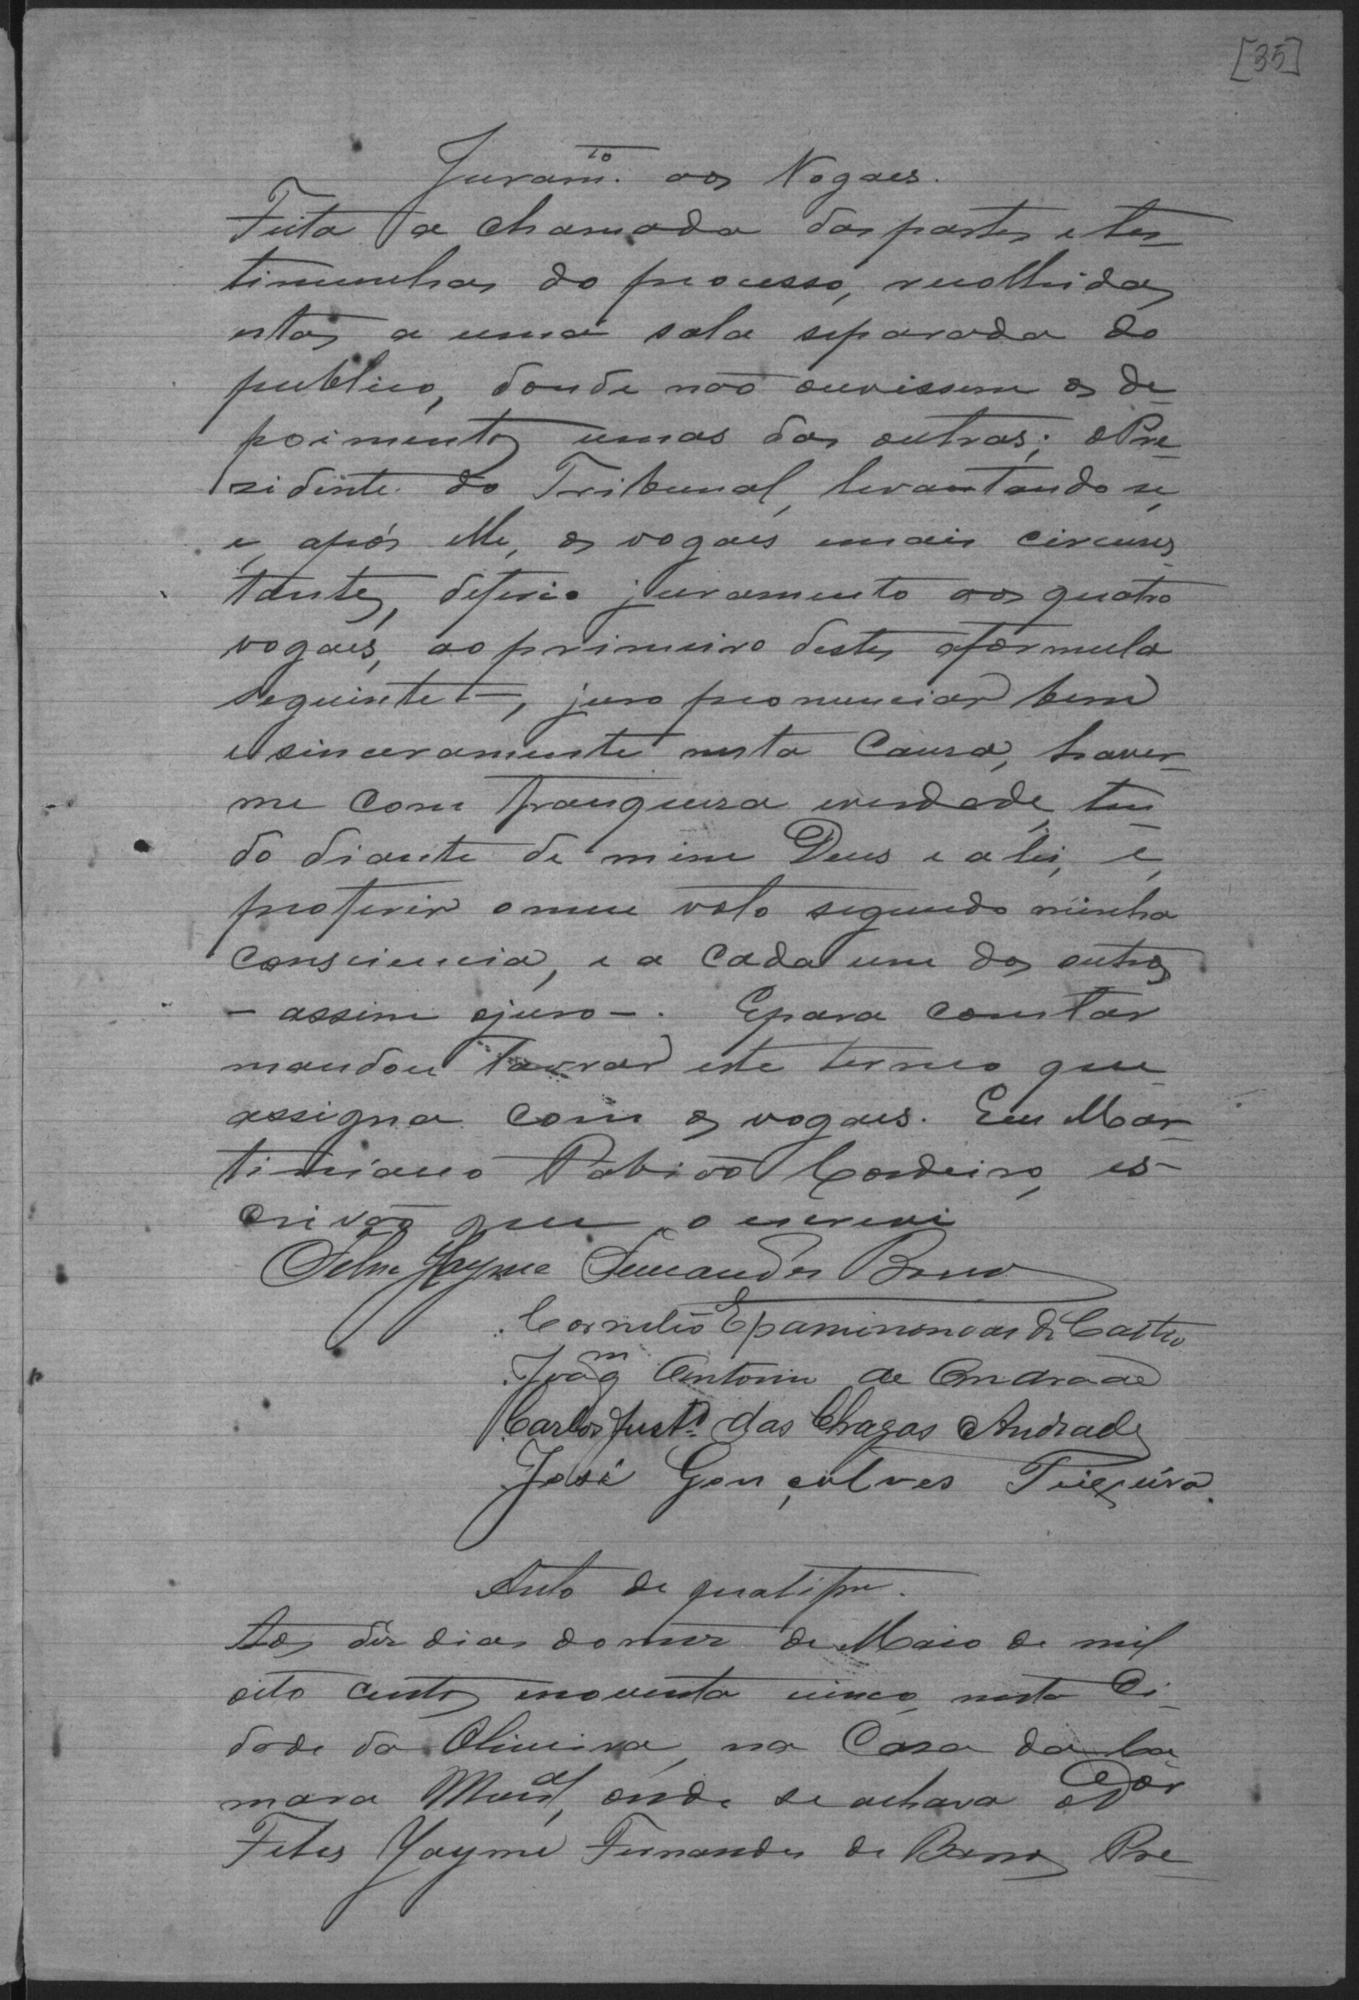 [35]
Juram.to aos Vogaes.
Feita a chamada das partes e tes-
timunhas do processo, recolhidas
estas a uma sala separada do
publico, donde não ouvissem os de-
poimentos umas das outras; o Pre-
zidente do Tribunal, levantando se,
e, após elle, os vogaes e mais circuns-
tantes, deferio juramento aos quatro
vogaes, ao primeiro destes a formula
seguinte –, juro pronunciar bem
e sinceramente nesta Causa, haver-
me com franqueza e verdade, ten-
do diante de mim Deus e a lei, e,
proferir o meu voto segundo minha
consciencia, e a cada um dos outros
– assim o juro –. E para constar
mandou lavrar este termo que
assigna com os vogaes. Eu Mar-
timiano Cordeiro, es-
crivão que o escrevi
Jayme Fernandes Barros
Cornelio Epaminondas de Castro
Joaqm Antonio de Andrade
Carlos Just.o das Chagas Andrade
José Gonçalves Teixeira.
Auto de qualifm.
Aos dez dias do mez de Maio de mil
oito centos e noventa e cinco, nesta Ci-
dade da Oliveira, na Casa da Ca-
mara Munal, onde se achava o Dor
Jayme Fernandes de Barros, Pre-